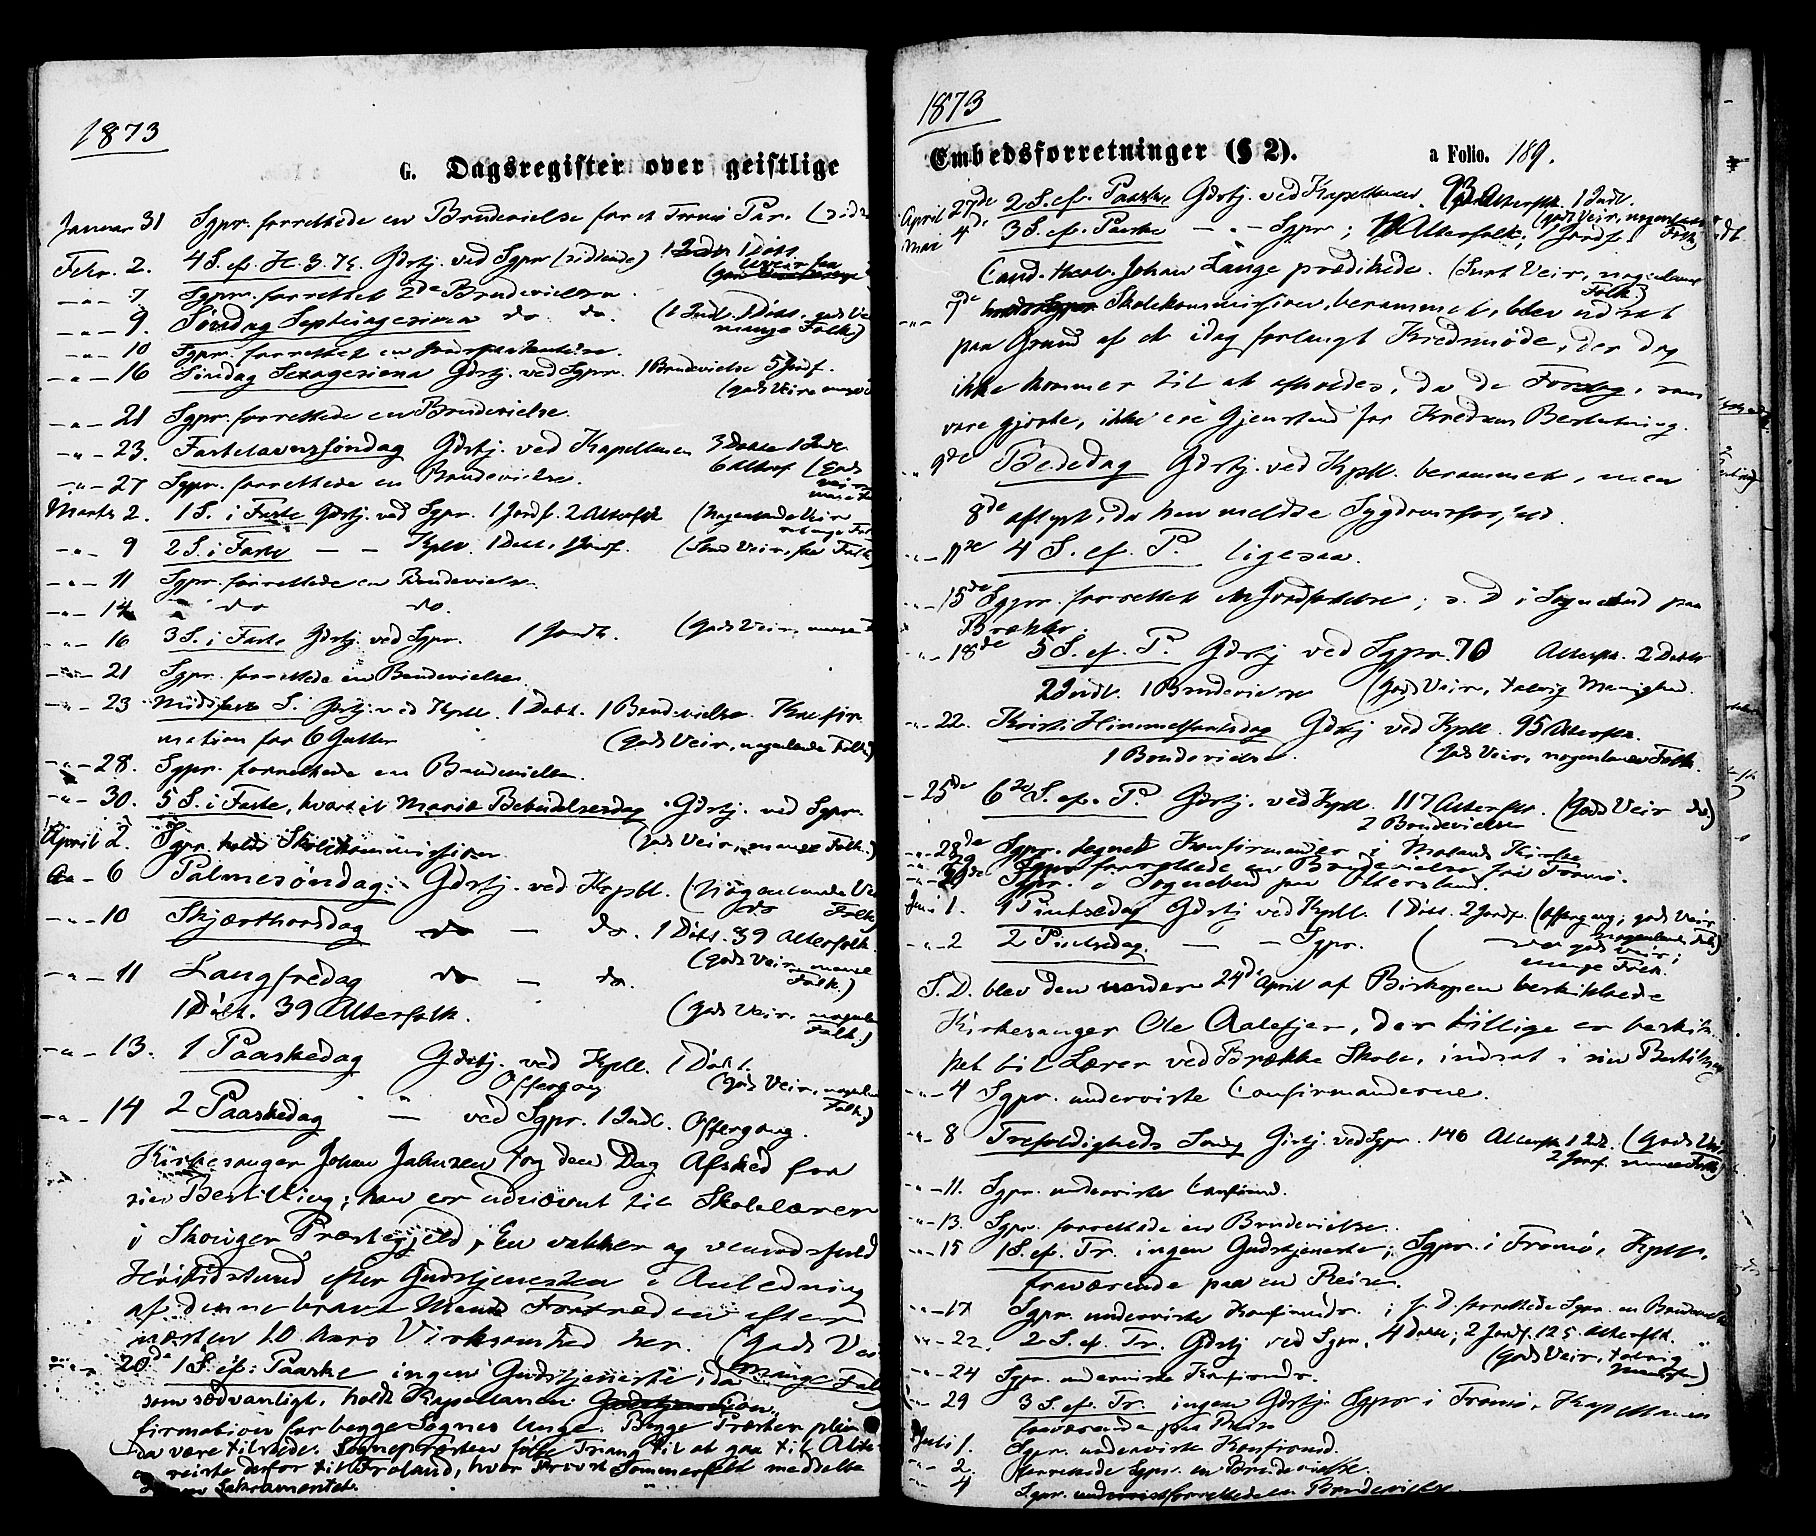 1873
G. Dagsregister over geistlige
Januar 31 Sgpr. forrettede en Brudevielse for et Tromø Par.
Febr. 2. 4 S. ef. H. 3 K. Gdstj. ved Sgpr (sidtende) 1 Døbt
-"- 7 Sgpr. forrettet 2de Brudevielser.
-"- 9. Søndag Septuagesima do. do. (1 Indl. 1 Døbt, gods Vei
mange Folk)
-"- 10 Sgpr. forrettet en Jordpaakastelse.
-"- 16 Søndag Sexagesima Gdstj. ved Sgpr. 1 Brudevielse 5 Jordf.
(gods Veir, mange
-"- 21 Sgpr. forrettede en Brudevielse.
-"- 23. Fastelavnssøndag Gdstj. ved Kapellanen 3 Døbte 1 Indl.
6 Alterf. (Gods
Veir
-"- 27 Sgpr. forrettede en Brudevielse.
Marts 2. 1 S. i Faste Gdstj. ved Sgpr. 1 Jordf. 2 Alterfolk (Nogenlunde Veir
-"- 9 2 S. i Faste — — Kpll. 1 Døbt. 1 Jordf. (Smuk Veir, faa Folk)
-"- 11 Sgpr. forrettede en Brudevielse.
-"- 14 do do.
-"- 16 3 S. i Faste Gdstj. ved Sgpr. 1 Jordf. (Gods Veir, mange F
-"- 21 Sgpr. forrettede en Brudevielse.
-"- 23 Midfaste S. Gdstj. ved Kpll. 1 Døbt. 1 Brudevielse. Konfir
mation for 6 Gutter (Gods Veir, nogenlunde Folk)
-"- 28. Sgpr. forrettede en Brudevielse.
-"- 30. 5 S. i Faste, hvortil Mariæ Bebudelsesdag. Gdstj. ved Sgpr.
(Gods Veir, mange Folk.)
April 2. Sgpr. holdt Skolekommission
-"- 6 Palmesøndag: Gdstj. ved Kpll. (Nogenlunde Ve
do Folk)
-"- 10 Skjærthorsdag do — do. 1 Døbt. 39 Alterfolk.
(Gods Veir, mange
Folk.)
-"- 11 Langfredag do — do.
1 Døbt. 39 Alterfolk. (Gods Veir, nogenlu
Folk.)
-"- 13. 1 Paaskedag Gdstj. ved Kpll. 1 Døbt.
Offergang (Gods Veir, nogenlu
Folk)
-"- 14 2 Paaskedag " — ved Sgpr. 1 Indl. Offergang.
Kirkesanger Johan Jahnsen tog den Dag Afsked fra
sin Bestilling; han er udnævnt til Skolelærer
i Skouger Præstegjeld; En vakker og vemodsfuld
Høitidsstund efter Gudstjenesten i Anledning
af denne brave Mands Fratræden efter
næsten 10 Aars Virksomhed her. (Gods Vei
mange Fol
-"- 20de 1 S. ef. Paaske ingen Gudstjeneste, da
som sædvanligt, holdt Kapellanen Con-
firmation for begge Sognes Unge. Begge Præster pleie
da være tilstede. Sognepræsten følte Trang til at gaa til Alte
reiste derfor til Froland, hvor Provst Sommerfelt meddelte
Sakramentet.
1873
Embedsforretninger (§ 2). a Folio. 189.
April 27de 2 S. ef. Paaske Gdstj. ved Kapellanen. 93 Alterfk. 1 Indl.
(gods Veir, nogenlunde
Folk)
Mai 4de 3 S. ef. Paaske — " — Sgpr; Alterfolk; 1 Jordf.
Cand. theol. Johan Lange prædikede. (Surt Veir, nogenlunde
Folk)
-"- 7de Skolekommission, berammet, blev udsat
paa Grund af et idag forlangt Kredsmøde, der dog
ikke kommer til at afholdes, da de Forslag, som
vare gjorte, ikke ere Gjenstand for Kredsens Beslutning.
"- 9de Bededag Gdstj. ved Kpll. berammet, men
8de aflyst, da han meldte Sygdomsforfald.
-"- 11de 4 S. ef. P. ligesaa.
-"- 15de Sgpr. forrettet en Jordfæstelse; s. D. i Sognebud paa
Brække.
-"- 18de 5 S. ef. P. Gdstj ved Sgpr. 70 Alterfk. 2 Døbte
2 Indl. 1 Brudevielse (Gods Veir, talrig Menighed.
-"- 22. Kristi Himmelfartsdag Gdstj ved Kpll. 95 Alterfk.
1 Brudevielse. (Gods Veir, nogenlunde Folk.
- 25de 6te S. ef. P. Gdstj. ved Kpll. 117 Alterfk. (Gods Veir do.)
2 Brudevielser
-"- 28de Sgpr. Konfirmander i Molands Kirke
-"- 29 Sgpr. forrettede en Brudevielse fra Tromø.
Sgpr. i Sognebud paa Ottersland.
Juni 1. 1 Pintsedag Gdstj ved Kpll. 1 Døbt. 2 Jordf. (Offergang; gods Veir
nogenlunde Folk)
-"- 2 2 Pintsedag. — — Sgpr. ( gods Veir;
mange Folk.
S. D. blev den under 24de April af Biskopen beskikkede
Kirkesanger Ole Aalefjer, der tillige er beskik-
ket til Lærer ved Brække Skole, indsat i sin Bestilling
-"- 4 Sgpr. underviste Confirmanderne.
-"- 8 Trefoldigheds Søndag Gdstj. ved Sgpr. 146 Alterfk. 1 Indl. (Gods Veir
2 Jordf. mange Folk)
-"- 11. Sgpr. underviste Confirmd.
-"- 13. Sgpr. forrettede en Brudevielse.
-"- 15 1 S. ef. Tr. ingen Gudstjeneste; Sgpr. i Tromø, Kpll.
fraværende paa en Reise.
-"- 17 Sgpr. underviste Konfirmds.; s. D. forrettede Sgpr. en Brudevielse
-"- 22. 2 S. ef. Tr. Gdstj ved Sgpr. 4 Døbte; 2 Jordf. 125 Alterfk.
(Gods Veir, talrig
Menighed)
-"- 24 Sgpr. underviste Konfirmds.
-"- 29 3 S. ef. Tr. ingen Gdstj. Sgpr i Tromø, Kapellanen
fraværende paa Reise
Juli 1. Sgpr. underviste Konfirmd.
-"- 2. forrettede Sgpr. en Brudevielse.
-"- 4 Sgpr. forrettede en Brudevielse.